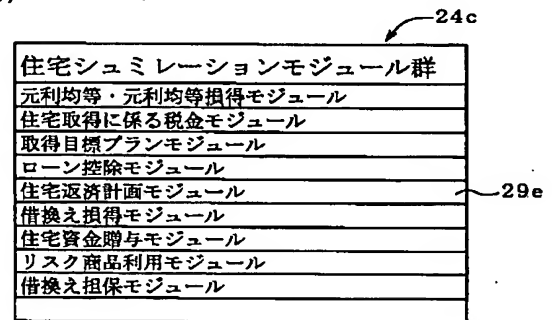 24c
住宅シュミレーションモジュール群
元利均等・元利均等損得モジュール
住宅取得に係る税金モジュール
取得目標プランモジュール
ローン控除モジュール
住宅返済計画モジュール
29e
借換え損得モジュール
住宅資金贈与モジュール
リスク商品利用モジュール
借換え担保モジュール